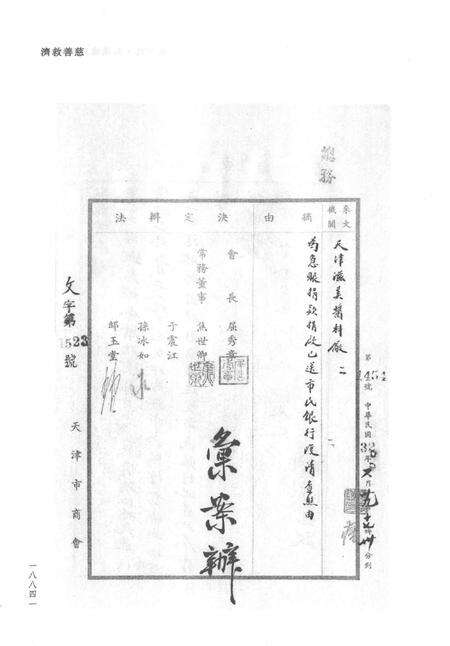 慈善救濟
總務
來文機關
摘由
決定辦法
天津滋美醬料廠
為急賑捐款捐啟已送市民銀行 請查照由
第1452號 中華民國
會長 屈秀章
常務董事 焦世卿
于震江
孫冰如
邸玉堂
彙案辦
文字第1523號
天津市商會
一八八四一